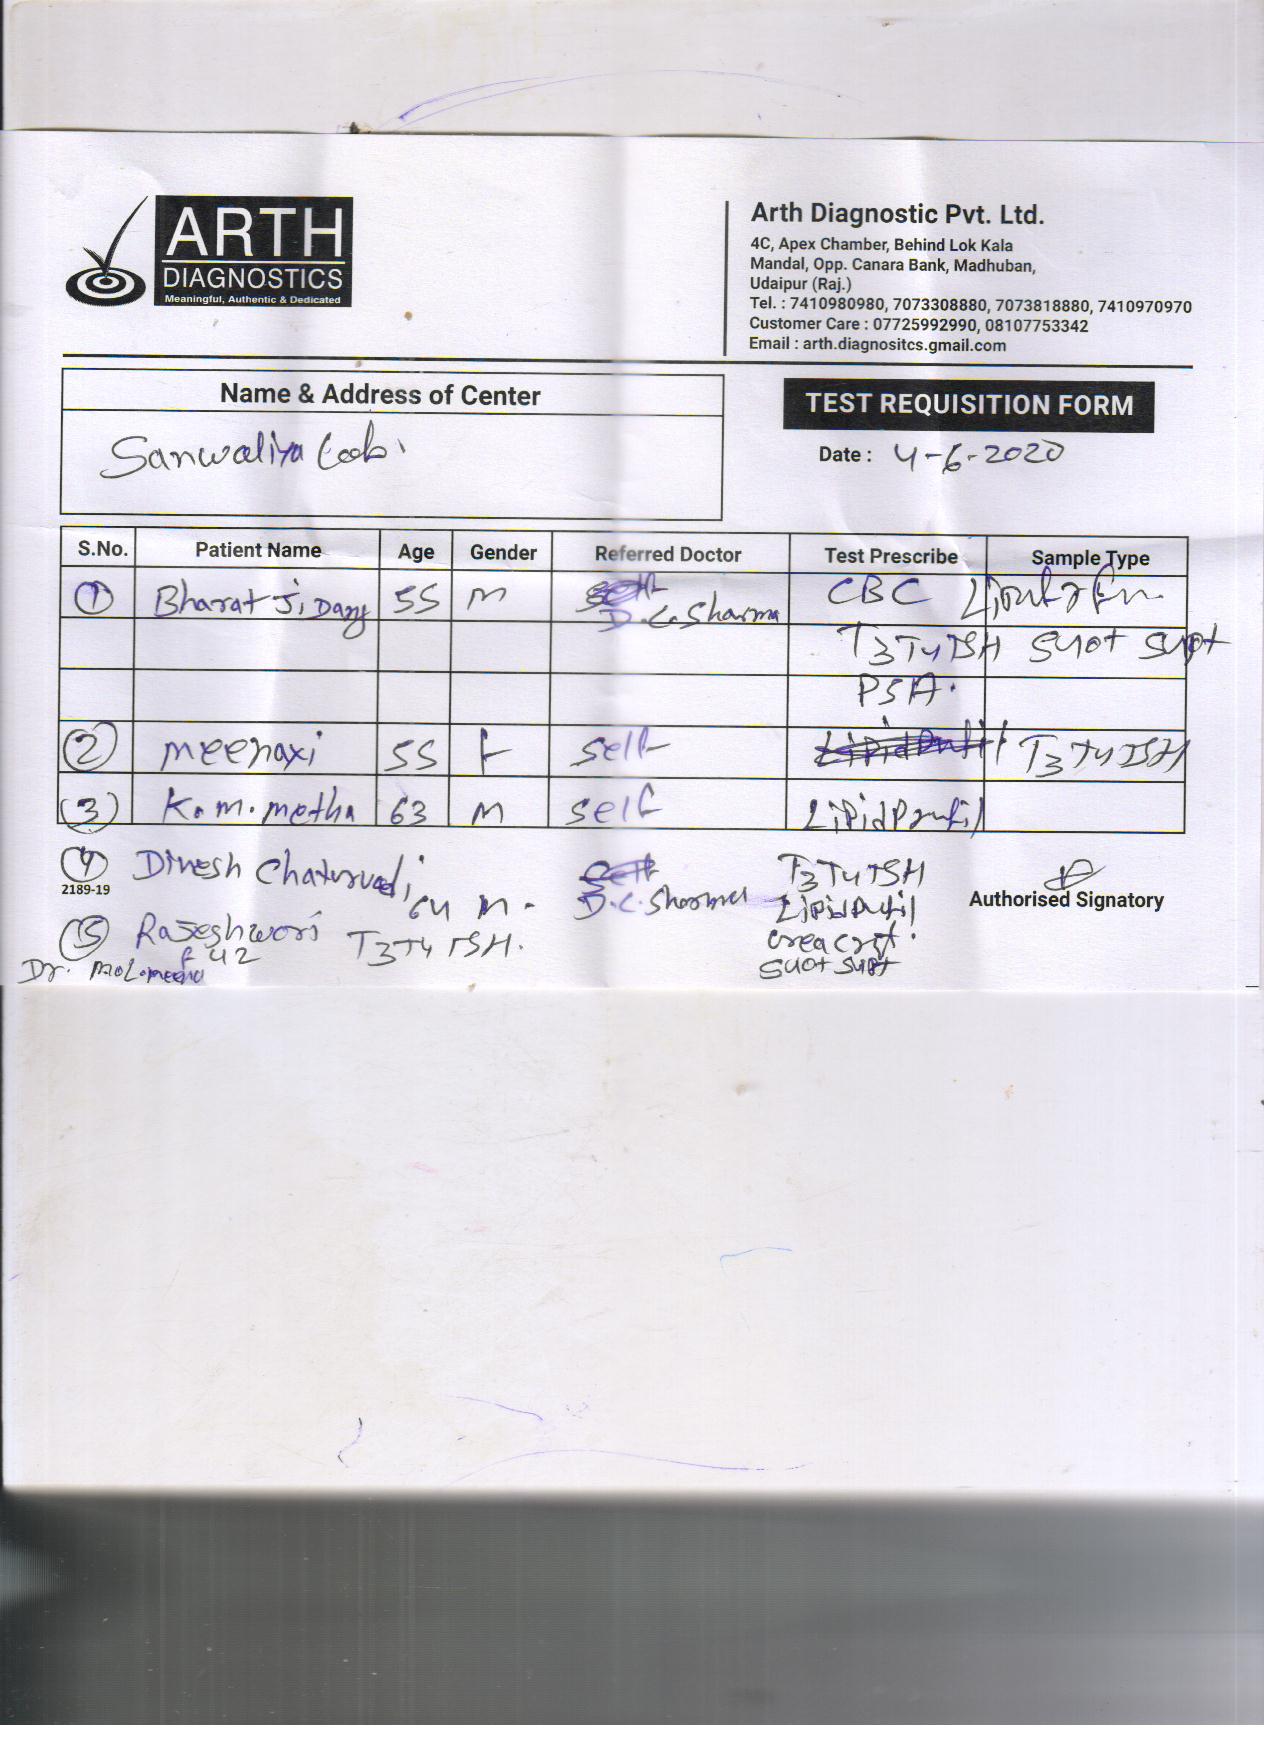 ARTH
DIAGNOSTICS
Meaningful, Authentic & Dedicated
Arth Diagnostic Pvt. Ltd.
4C, Apex Chamber, Behind Lok Kala
Mandal, Opp. Canara Bank, Madhuban,
Udaipur (Raj.)
Tel. : 7410980980, 7073308880, 7073818880, 7410970970
Customer Care : 07725992990, 08107753342
Email : arth.diagnositcs.gmail.com
Name & Address of Center
TEST REQUISITION FORM
Sanwaliya Lab
Date : 4-6-2020
S.No. Patient Name Age Gender Referred Doctor Test Prescribe Sample Type
1 Bharat Ji 55 M D.C. Sharma CBC
T3 T4 TSH SGOT SGPT
PSA.
2 Meenaxi 55 F self T3 T4 TSH
3 K. M. Metha 63 M self LipidProfil
4 Dinesh Chaturvedi 64 M. D.C. Sharma T3 T4 TSH
2189-19
Authorised Signatory
LipidProfil
5 Rajeshwori F 42 T3 T4 TSH.
SGOT SGPT
Dr.